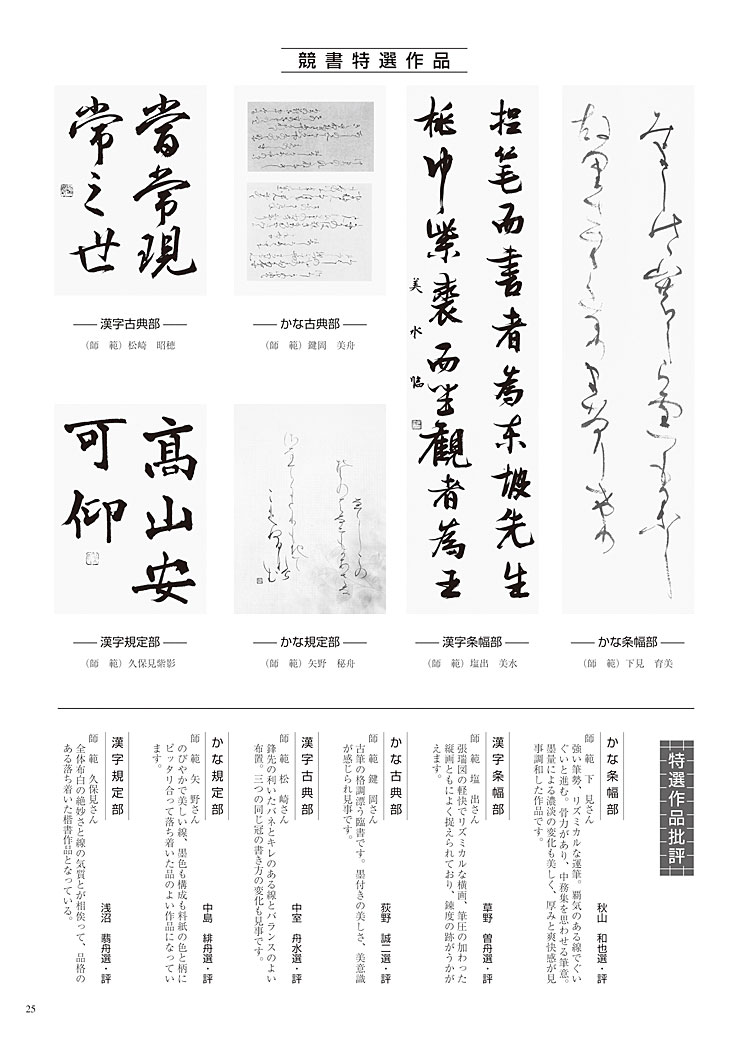 競書特選作品
當常現
常之世
漢字古典部
（師　範）松崎　昭穂
かな古典部
（師　範）鍵岡　美舟
捉笔而書者為東坡先生
桃巾紫裘而坐觀者為王
美水臨
漢字条幅部
（師　範）塩出　美水
かな条幅部
（師　範）下見　育美
高山安
可仰
漢字規定部
（師　範）久保見紫影
かな規定部
（師　範）矢野　秘舟
特選作品批評
かな条幅部
秋山　和也選・評
師　範　下　見さん
強い筆勢、リズミカルな運筆。覇気のある線でぐい
ぐいと進む。骨力があり、中務集を思わせる筆意。
墨量による濃淡の変化も美しく、厚みと爽快感が見
事調和した作品です。
漢字条幅部
草野　曽舟選・評
師　範　塩　出さん
張瑞図の軽快でリズミカルな横画、筆圧の加わった
縦画ともによく捉えられており、錬度の跡がうかが
えます。
かな古典部
荻野　誠二選・評
師　範　鍵　岡さん
古筆の格調漂う臨書です。墨付きの美しさ、美意識
が感じられ見事です。
漢字古典部
中室　舟水選・評
師　範　松　崎さん
鋒先の利いたバネとキレのある線とバランスのよい
布置。三つの同じ冠の書き方の変化も見事です。
かな規定部
中島　緋舟選・評
師　範　矢　野さん
のびやかで美しい線、墨色も構成も料紙の色と柄に
ピッタリ合って落ち着いた品のよい作品になってい
ます。
漢字規定部
浅沼　翡舟選・評
師　範　久保見さん
全体布白の絶妙さと線の気質とが相俟って、品格の
ある落ち着いた楷書作品となっている。
25